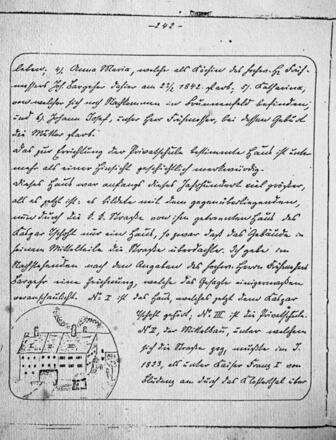 -242-
leben, 4, Anna Maria, welche als Köchin des hochw. H. Früh-
messers Joh. Barzeher dahier am 27/4 1842 starb, 5, Katharina,
von welcher sich noch Nachkommen in Braunenfeld befinden,
und 6, Johann Josef, unser Herr Frühmesser, bei dessen Geburt
die Mutter starb.
Das zur Errichtung der Privatschule bestimmte Haus ist unter
mehr als einer Hinsicht geschichtlich merkwürdig.
Dieses Haus war anfangs dieses Jahrhunderts viel größer,
als es jetzt ist: es bildete mit dem gegenüberliegenden,
nun durch die Straße von ihm getrennten Haus des
Balzar nur ein Haus, so zwar daß das Gebäude in
seinem Mittelteile die Straße überdachte. Ich gebe im
Nachstehenden nach den Angaben des hochw. Herrn Frühmessers
eine Zeichnung, welche das Gesagte einigermaßen
veranschaulicht. No I ist das Haus, welches jetzt dem Balzar
gehört, No III ist die Privatschule.
No II, der Mittelbau, unter welchem
sich die Straße zog, mußte im J.
1823, als unter Kaiser Franz I von
Bludenz an durch das Klosterthal über